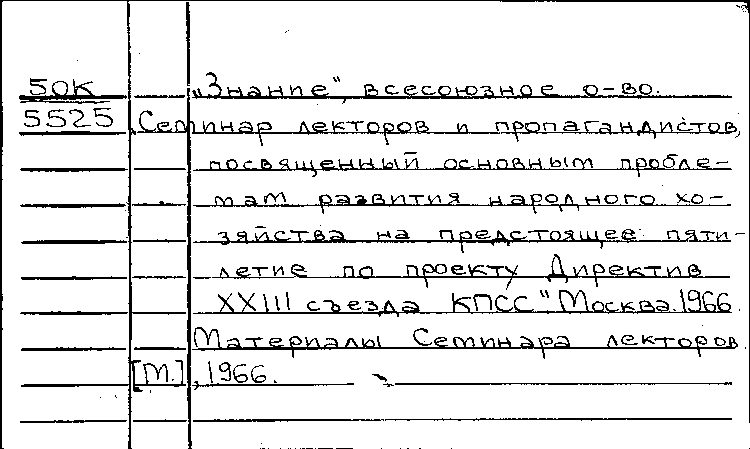 50К „Знание", всесоюзное о-во.
5525 Семинар лекторов и пропагандистов,
посвященный основным пробле-
мам развития народного хо-
зяйства на предстоящее пяти-
летие по проекту Директив
XXIII съезда КПСС". Москва. 1966.
Материалы Семинара лекторов.
[М.], 1966.